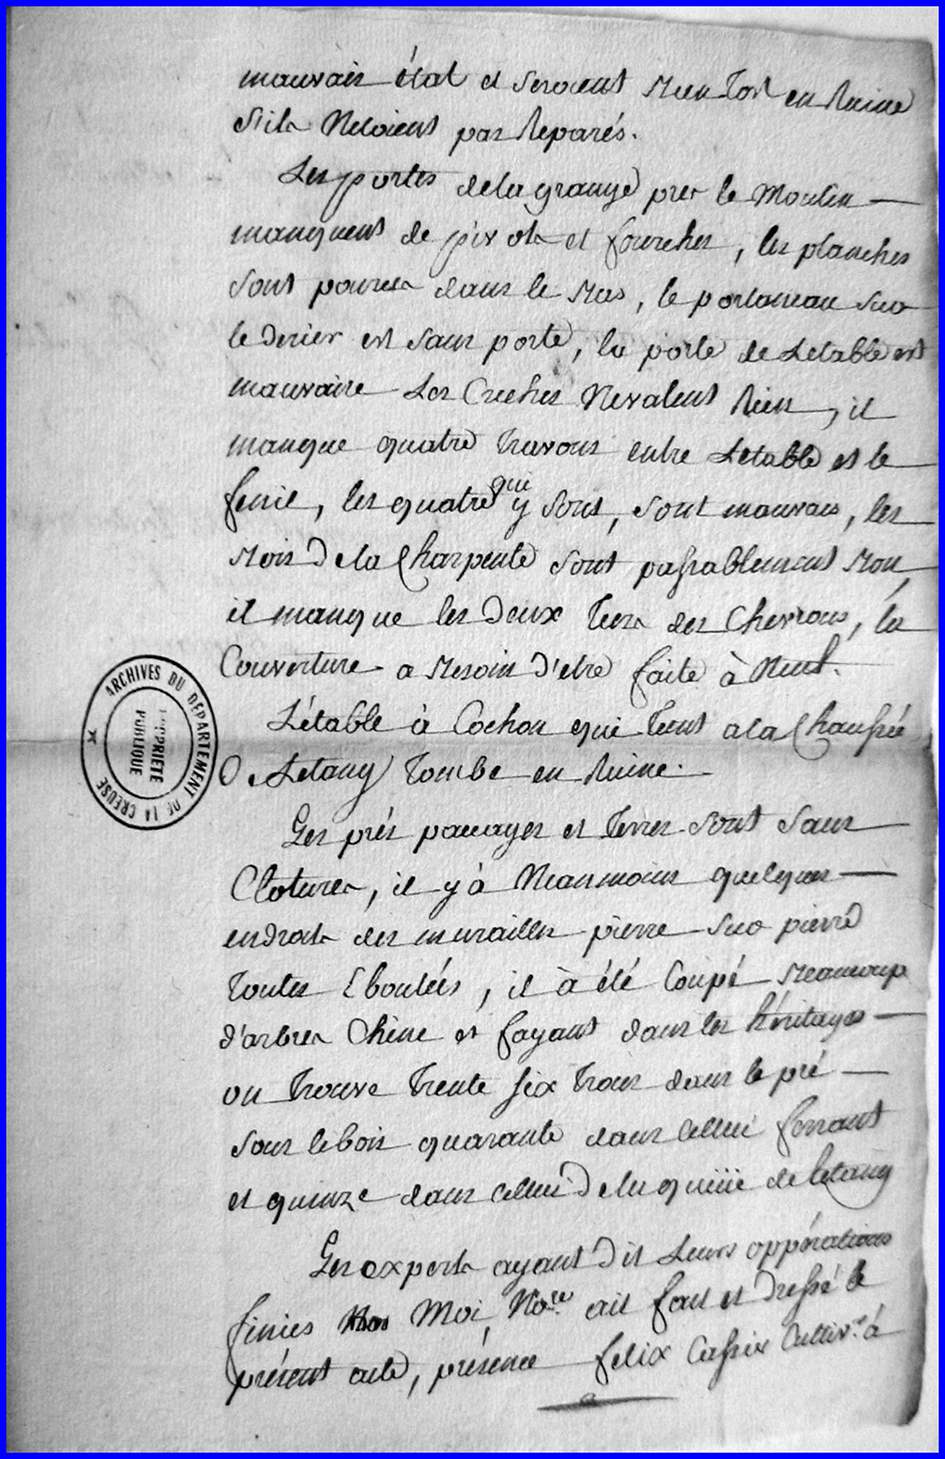 mauvais état et seroient Bientost en Ruine
S'ils Netoient pas Reparés.
Les portes de la grange pres le Moulin
manquent de pivots et fourches, les planches
sont pouries dans le Bas, le portaneau sur
le derier est sans porte, la porte de Letable est
mauvaise Les Creches Nevalent Rien, il
manque quatre Travons entre Letable et le
fenil, les quatre qui y sont, sont mauvais, les
Bois de la Charpente sont passablement Bon,
il manque les deux Tiers des Chevrons, la
Couverture a Besoin d'etre faite à Neuf.
L'étable à Cochon qui Tient a la Chaussée
De Letang Tombe en Ruine.
Les prés pacages et Terres sont sans
Clotures, il y à Neanmoins quelques
endroits des murailles pierre sur pierre
Toutes Eboulées, il à été Coupé Beaucoup
d'arbres Chêne et fayant dans les héritages
on Trouve Trente six Troux dans le pré
sous le bois quarante dans Cellui ferrant
et quinze dans cellui de la queüe de Letang
Les experts ayant Dit Leurs oppérations
finies Moi No.re ait fait et Dressé le
présent acte, présence felix Cassix Cultiv.r à
ARCHIVES DU DÉPARTEMENT DE LA CREUSE
PROPRIÉTÉ
PUBLIQUE